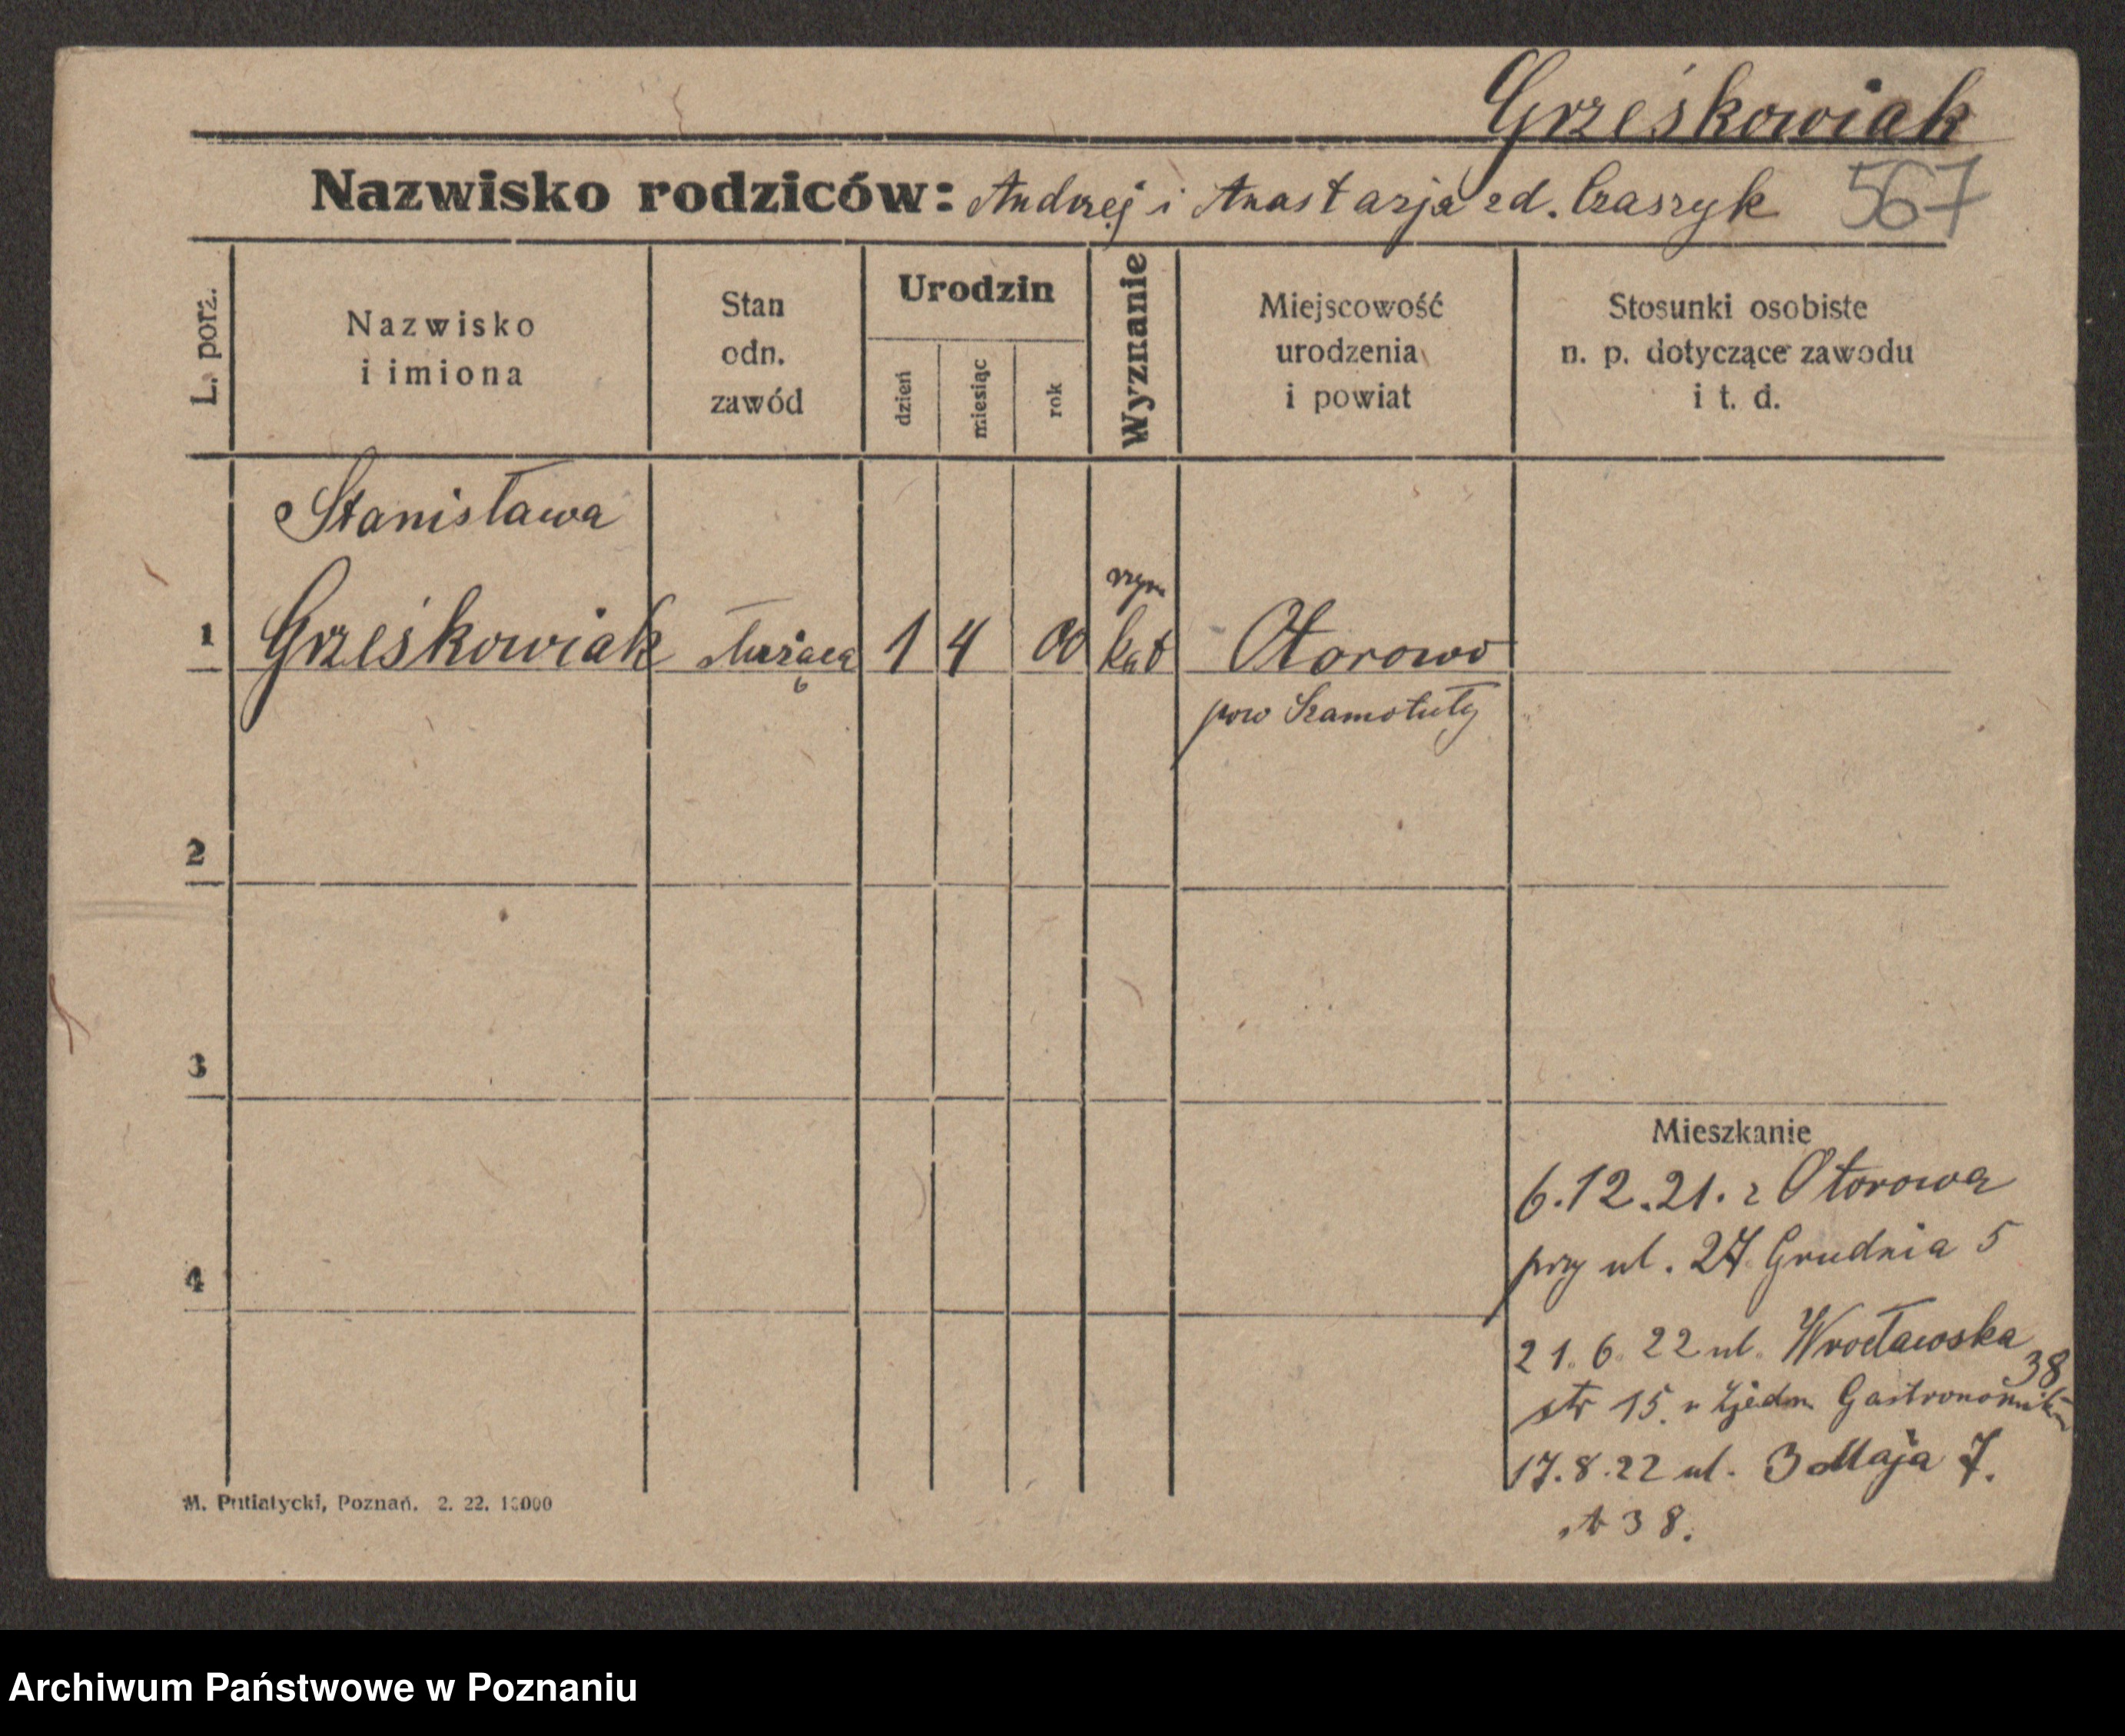 Grześkowiak
Nazwisko rodziców: Andrzej i Anastazja zd. Czaszyk 567
L. porz.
Nazwisko
i imiona
Stan
odn.
zawód
Urodzin
dzień
miesiąc
rok
Wyznanie
Miejscowość
urodzenia
i powiat
Stosunki osobiste
n. p. dotyczące zawodu
i t. d.
Stanisława
rzym
1 Grześkowiak służąca 1 4 00 kat Otorowo
pow Szamotuły
2
3
Mieszkanie
6.12.21. z Otorowa
4
przy ul. 27 Grudnia 5
21. 6. 22 ul. Wrocławska
38
str 15. u Zjedn. Gastronomik
17. 8. 22 ul. 3 Maja 7.
38.
M. Putiatycki, Poznań. 2. 22. 10000
Archiwum Państwowe w Poznaniu